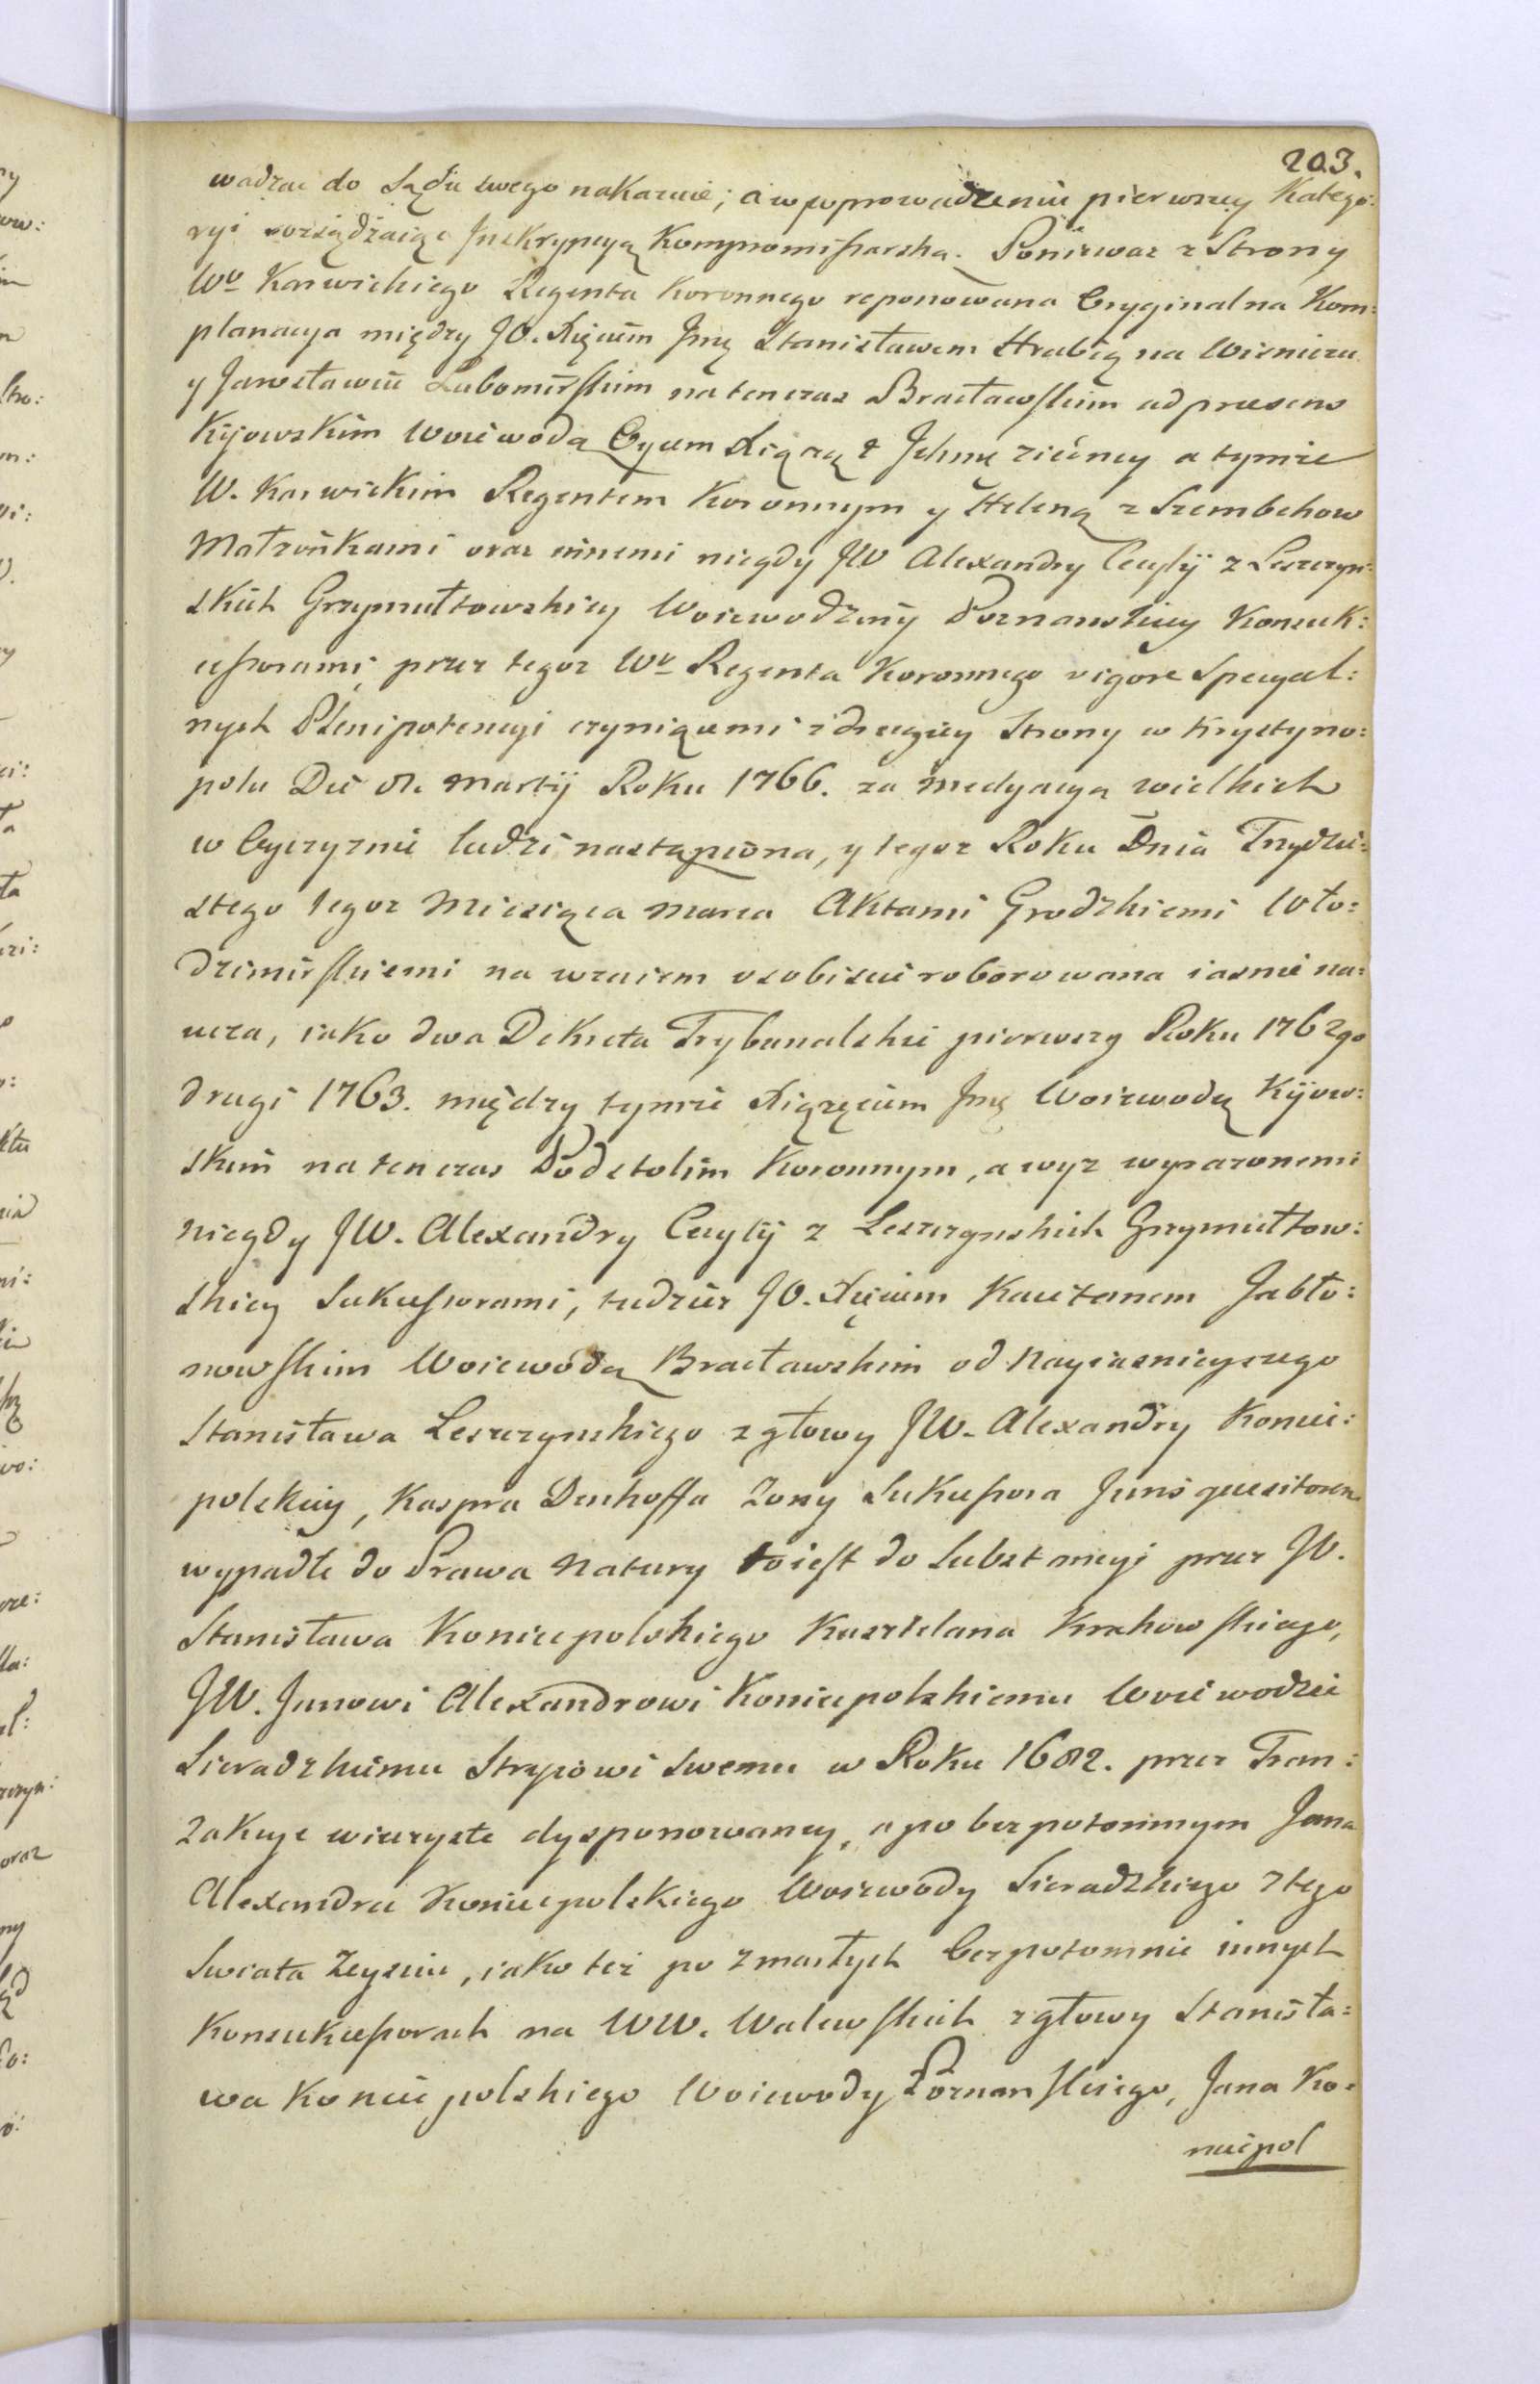 203.
wadzac do Sądu swego nakazuie; a w poprowadzeniu pierwszey Katego:
ryi rozsądzaiąc Inskrypcyą Kompromissarską. Poniewaz z Strony
Wo Karwickiego Regenta Koronnego reponowana Oryginalna Kom:
planacya między JO. Xięciem Jmę Stanisławem Hrabią na Wisniczu
y Jarosławiu Lubomirskim na ten czas Bracławskim ad praesens
Kijowskim Woiewodą Oycem Xiązą Jchmę z iedney a tymże
W. Karwickim Regentem Koronnym y Heleną z Szembekow
Małzonkami oraz innemi niegdy JW Alexandry Cecylij z Leszczyn:
skich Grzymułtowskiey Woiewodziny Poznanskiey Konsuk:
cessorami, przez tegoz Wo Regenta Koronnego vigore Specyal:
nych Plenipotencyi czyniącemi z drugiey Strony w Krystyno:
polu Die 8. Martij Roku 1766. za Medyacyą wielkich
w Oyczyznie ludzi nastąpiona, y tegoz Roku Dnia Trzydzie:
stego tegoz Miesiąca Marca Aktami Grodzkiemi Wło:
dzimirskiemi na wzaiem osobiscie roborowana iasnie na:
ucza, iako dwa Dekreta Trybunalskie pierwszy Roku 1762go
drugi 1763. między tymże Xiązęciem Jmę Woiewodą Kijow:
skim na ten czas Podstolim Koronnym, a wyz wyrazonemi
niegdy JW. Alexandry Cecylij z Leszczynskich Grzymułtow:
skiey Sukcessorami, tudziez JO. Xięciem Kaietanem Jabło:
nowskim Woiewodą Bracławskim od Nayiasnieyszego
Stanisława Leszczynskiego z głowy JW. Alexandry Koniec:
polskiey, Kaspra Denhoffa Zony Sukcessora Juris quesitorem
wypadłe do Prawa Natury to iest do Substancyi przez JW.
Stanisława Koniecpolskiego Kasztelana Krakowskiego,
JW. Janowi Alexandrowi Koniecpolskiemu Woiewodzie
Sieradzkiemu Stryiowi swemu w Roku 1682. przez Tran:
zakcye wieczyste dysponowaney, a po bezpotomnym Jana
Alexandra Koniecpolskiego Woiewody Sieradzkiego z tego
Swiata Zeysciu, iako też po zmarłych bezpotomnie innych
Konsukcessorach na WW. Walewskich z głowy Stanisła:
wa Koniecpolskiego Woiewody Poznanskiego, Jana Ko:
niecpol